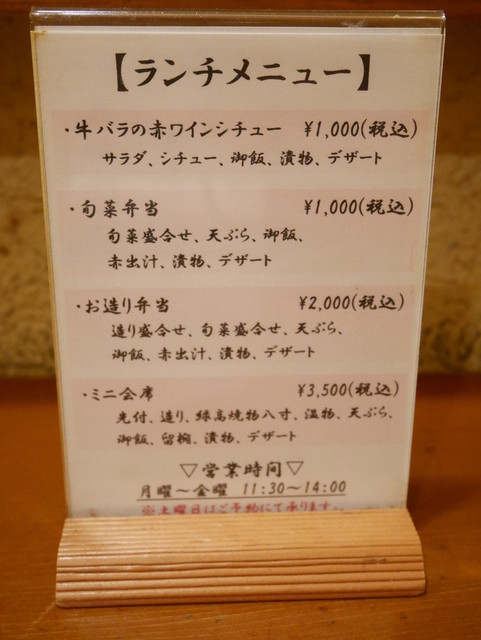 【ランチメニュー】
・牛バラの赤ワインシチュー ¥1,000(税込)
サラダ、シチュー、御飯、漬物、デザート
・旬菜弁当 ¥1,000(税込)
旬菜盛合せ、天ぷら、御飯、
赤出汁、漬物、デザート
・お造り弁当 ¥2,000(税込)
造り盛合せ、旬菜盛合せ、天ぷら、
御飯、赤出汁、漬物、デザート
・ミニ会席 ¥3,500(税込)
先付、造り、縁高焼物八寸、温物、天ぷら、
御飯、留椀、漬物、デザート
▽営業時間▽
月曜～金曜 11:30～14:00
※土曜日はご予約にて承ります。